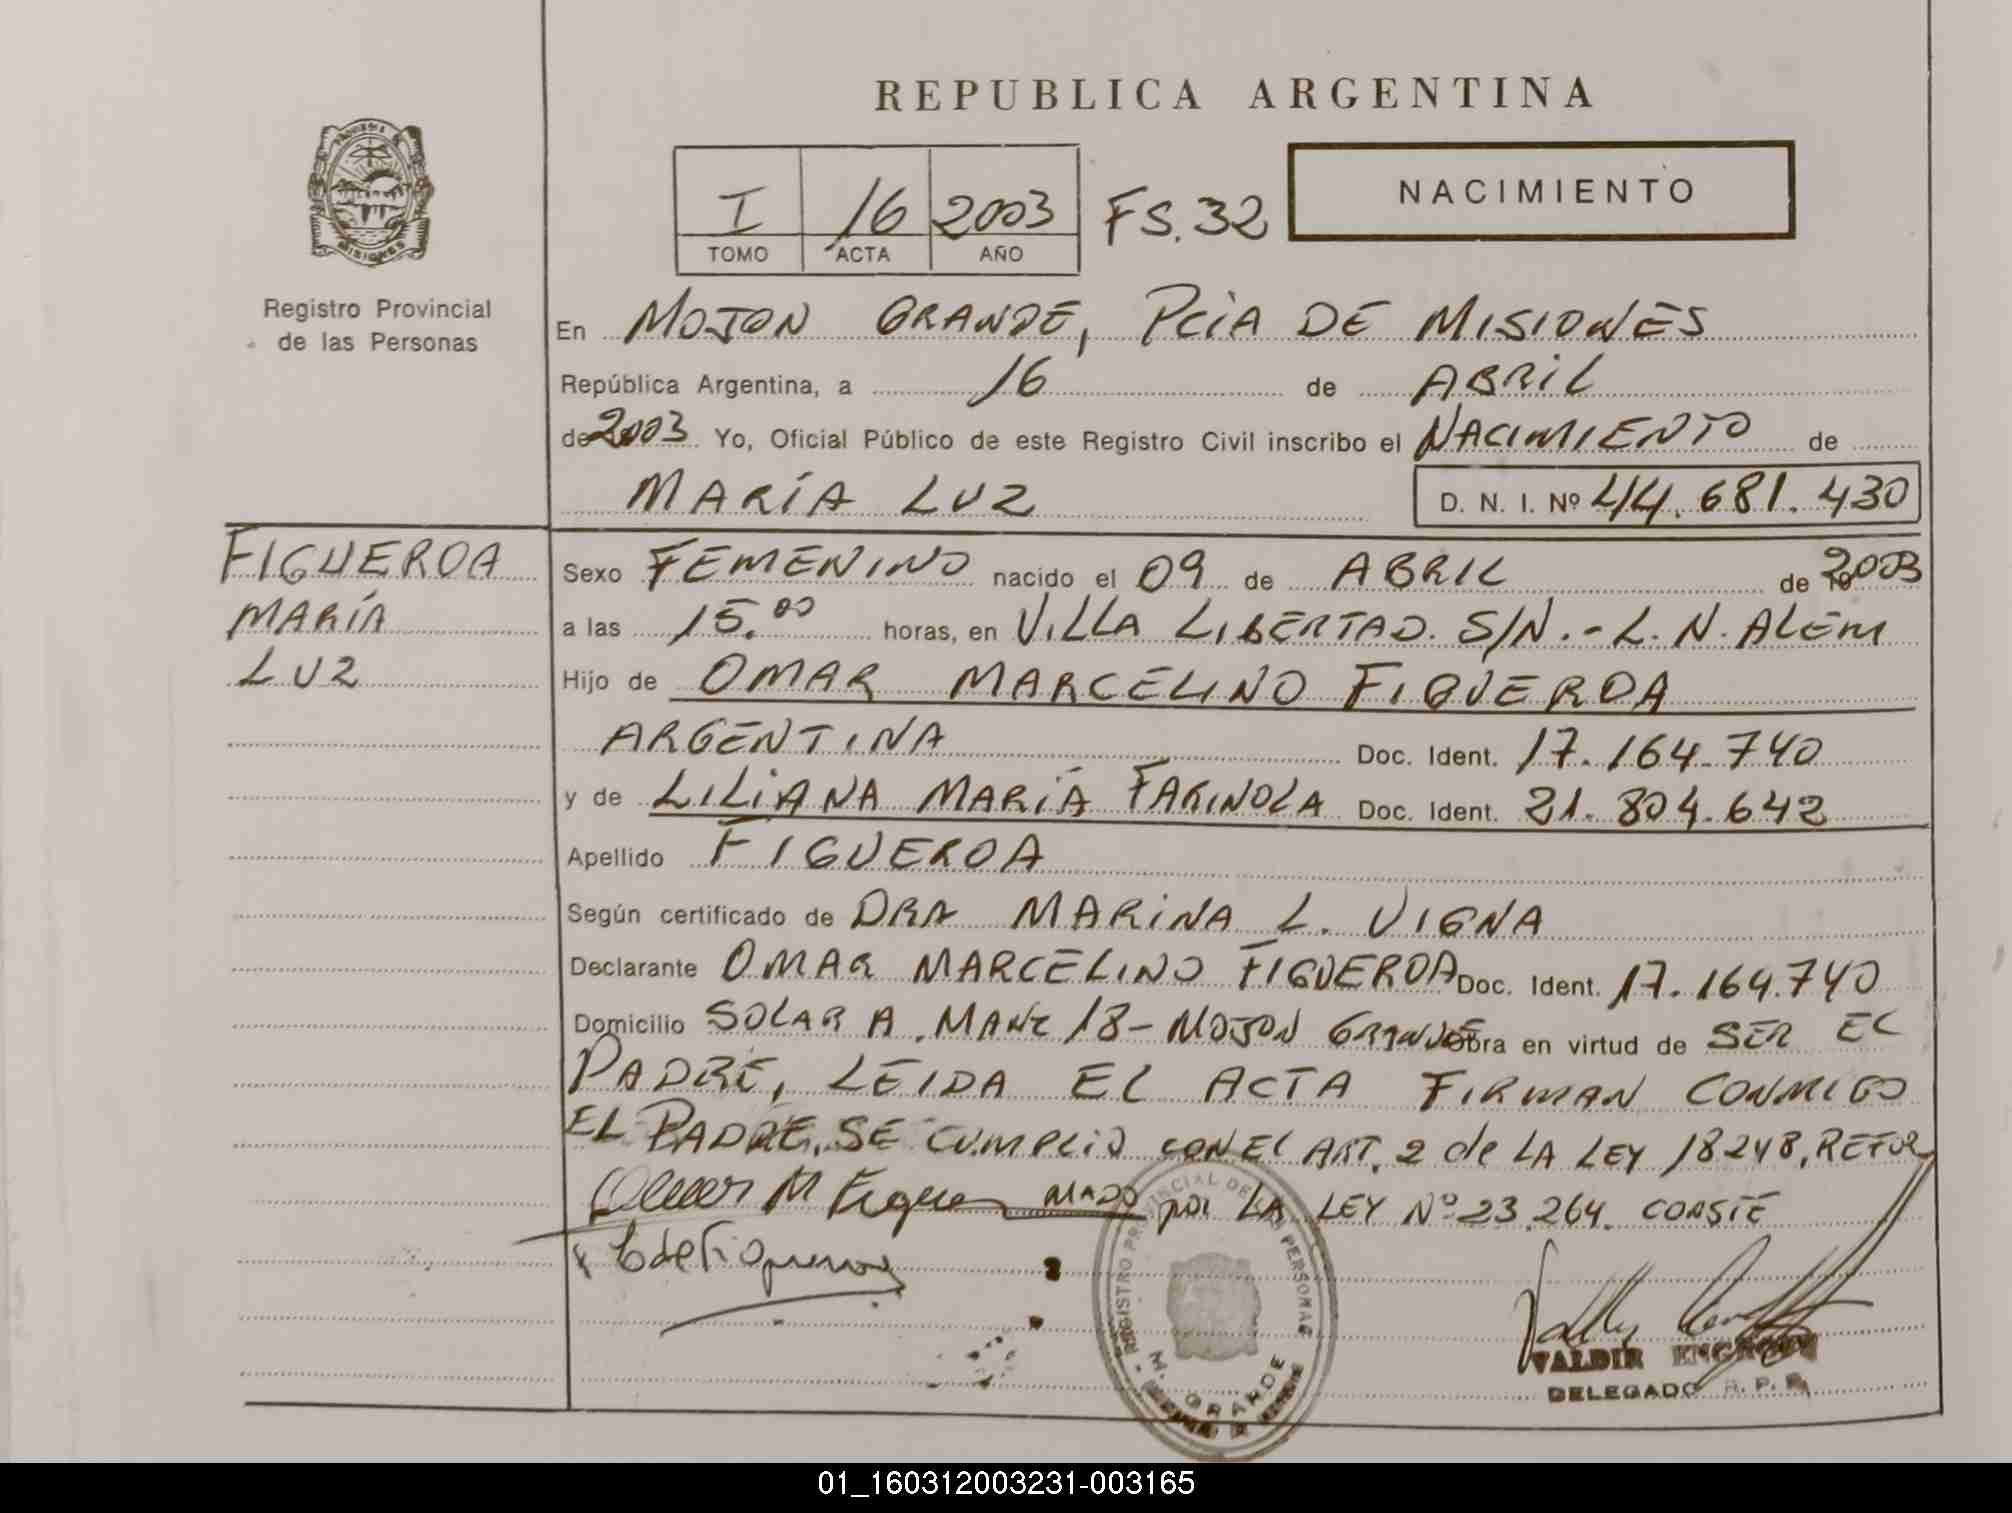 REPUBLICA ARGENTINA
PROVINCIA
MISIONES
Registro Provincial
de las Personas
I 16 2003 FS. 32 NACIMIENTO
TOMO ACTA AÑO
En MOJON GRANDE, PCIA DE MISIONES
República Argentina, a 16 de ABRIL
de 2003 Yo, Oficial Público de este Registro Civil inscribo el NACIMIENTO de
MARÍA LUZ D. N. I. Nº 44.681.430
FIGUEROA
MARÍA
LUZ
Sexo FEMENINO nacido el 09 de ABRIL de 2003
a las 15.00 horas, en VILLA LIBERTAD. S/N.- L. N. ALEM
Hijo de OMAR MARCELINO FIGUEROA
ARGENTINA Doc. Ident. 17.164.740
y de LILIANA MARÍA FARINOLA Doc. Ident. 21.804.642
Apellido FIGUEROA
Según certificado de DRA MARINA L. VIGNA
Declarante OMAR MARCELINO FIGUEROA Doc. Ident. 17.164.740
Domicilio SOLAR A. MANZ 18- MOJON GRANDE Obra en virtud de SER EL
PADRE, LEIDA EL ACTA FIRMAN CONMIGO
EL PADRE. SE CUMPLIO CON EL ART. 2 de LA LEY 18248, REFOR
Omar M Figueroa MADO por LA LEY Nº 23.264. CONSTE
REGISTRO PROVINCIAL DE LAS PERSONAS
M. GRANDE
VALDIR
DELEGADO R. P. P.
01_160312003231-003165